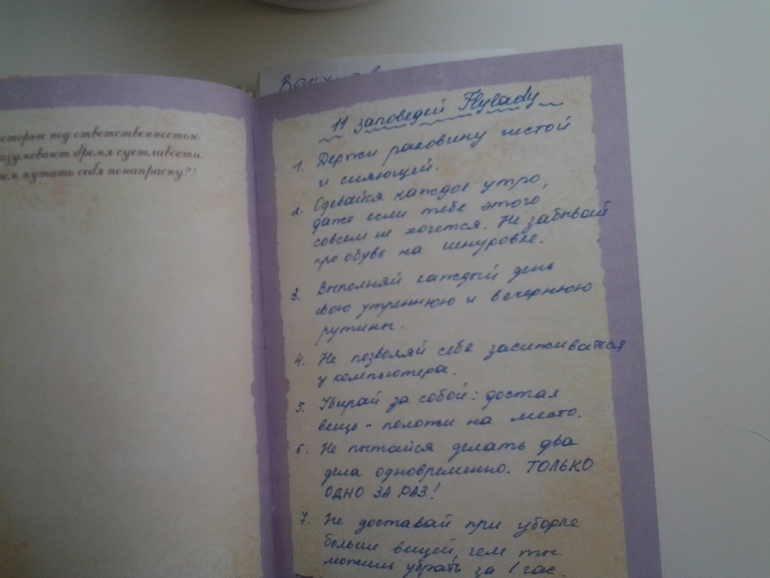 которые под ответственностью
разумевают время суетливости.
чем путать себя понапрасну?!
11 заповедей Flylady
1. Держи раковину чистой
и сияющей.
2. Одевайся каждое утро,
даже если тебе этого
совсем не хочется. Не забывай
про обувь на шнуровке.
3. Выполняй каждый день
свою утреннюю и вечернюю
рутины.
4. Не позволяй себе засиживаться
у компьютера.
5. Убирай за собой: достал
вещь - положи на место.
6. Не пытайся делать два
дела одновременно. ТОЛЬКО
ОДНО ЗА РАЗ!
7. Не доставай при уборке
больше вещей, чем ты
можешь убрать за 1 час.